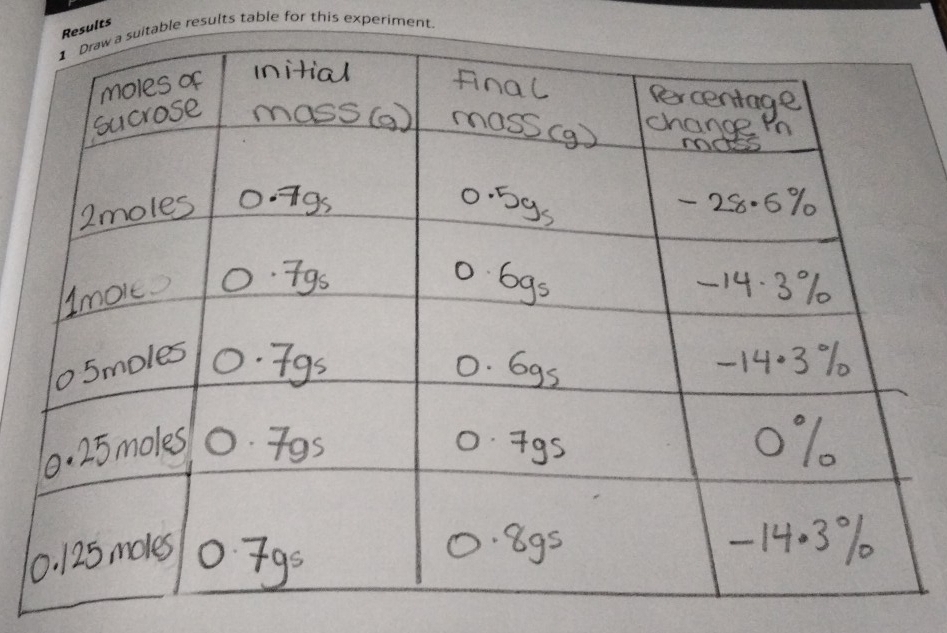 Results
1 Draw a suitable results table for this experiment.
moles of sucrose | Initial mass (g) | Final mass (g) | Percentage change in mass
2moles | 0.7gs | 0.5gs | -28.6%
1moles | 0.7gs | 0.6gs | -14.3%
0 5moles | 0.7gs | 0.6gs | -14.3%
0.25 moles | 0.7gs | 0.7gs | 0%
0.125 moles | 0.7gs | 0.8gs | -14.3%